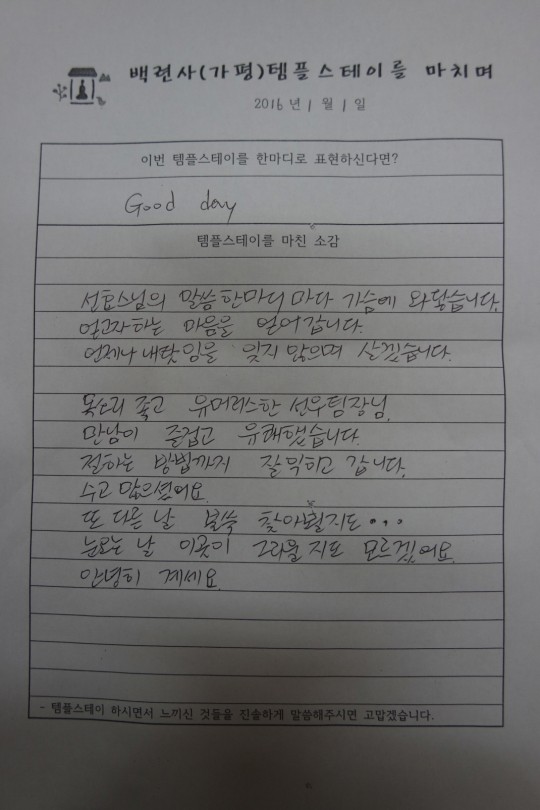 백련사(가평)템플스테이를 마치며
2016년 1월 1일
이번 템플스테이를 한마디로 표현하신다면?
Good day
템플스테이를 마친 소감
선효스님의 말씀 한마디 마다 가슴에 와닿습니다.
얻고자 하는 마음을 얻어 갑니다.
언제나 내탓임을 잊지 않으며 살겠습니다.
목소리 좋고 유머러스한 선우팀장님.
만남이 즐겁고 유쾌했습니다.
절하는 방법까지 잘 익히고 갑니다.
수고 많으셨어요.
또 다른 날 불쑥 찾아뵐지도...
눈오는 날 이곳이 그리울지도 모르겠어요.
안녕히 계세요.
- 템플스테이 하시면서 느끼신 것들을 진솔하게 말씀해주시면 고맙겠습니다.